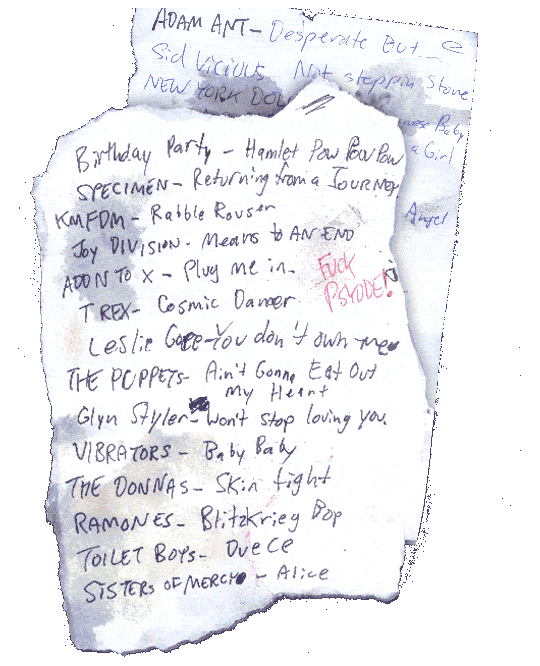 ADAM ANT - Desperate But
Sid Vicious Not steppin Stone
NEW YORK DOL
Baby
a Girl
Angel
Birthday Party - Hamlet Pow Pow Pow
SPECIMEN - Returning from a JOURNEY
KMFDM - Rabble Rouser
Joy DIVISION - Means to AN END
ADD N TO X - Plug me in.
T REX - Cosmic Dancer
Fuck
PSYODE!
Leslie Gore - You don't own me
THE PUPPETS - Ain't Gonna Eat Out
My Heart
Glyn Styler - Won't stop loving you.
VIBRATORS - Baby Baby
THE DONNAS - Skin tight
RAMONES - Blitzkrieg Bop
TOILET BOYS - DueCe
SISTERS OF MERCY - Alice